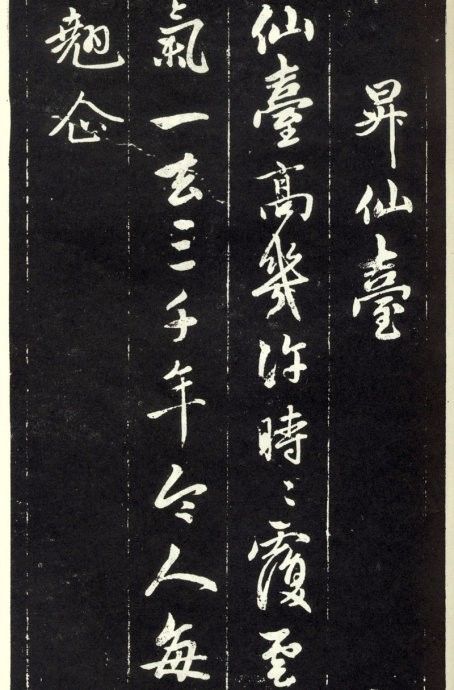 昇仙臺
仙臺高幾許時〻覆雲
氣一去三千年令人每
翹企